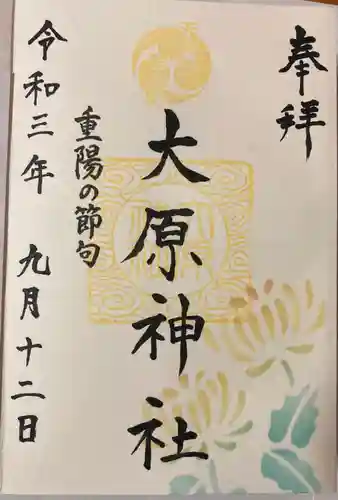 奉拝
大原神社
重陽の節句
令和三年 九月十二日